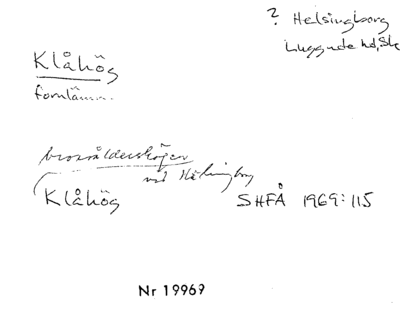 ? Helsingborg
Luggude hd, Sk
Klåhög
fornlämn.
bronsåldershögen
vid Hälsingborg
Klåhög SHFÅ 1969:115
Nr 19969